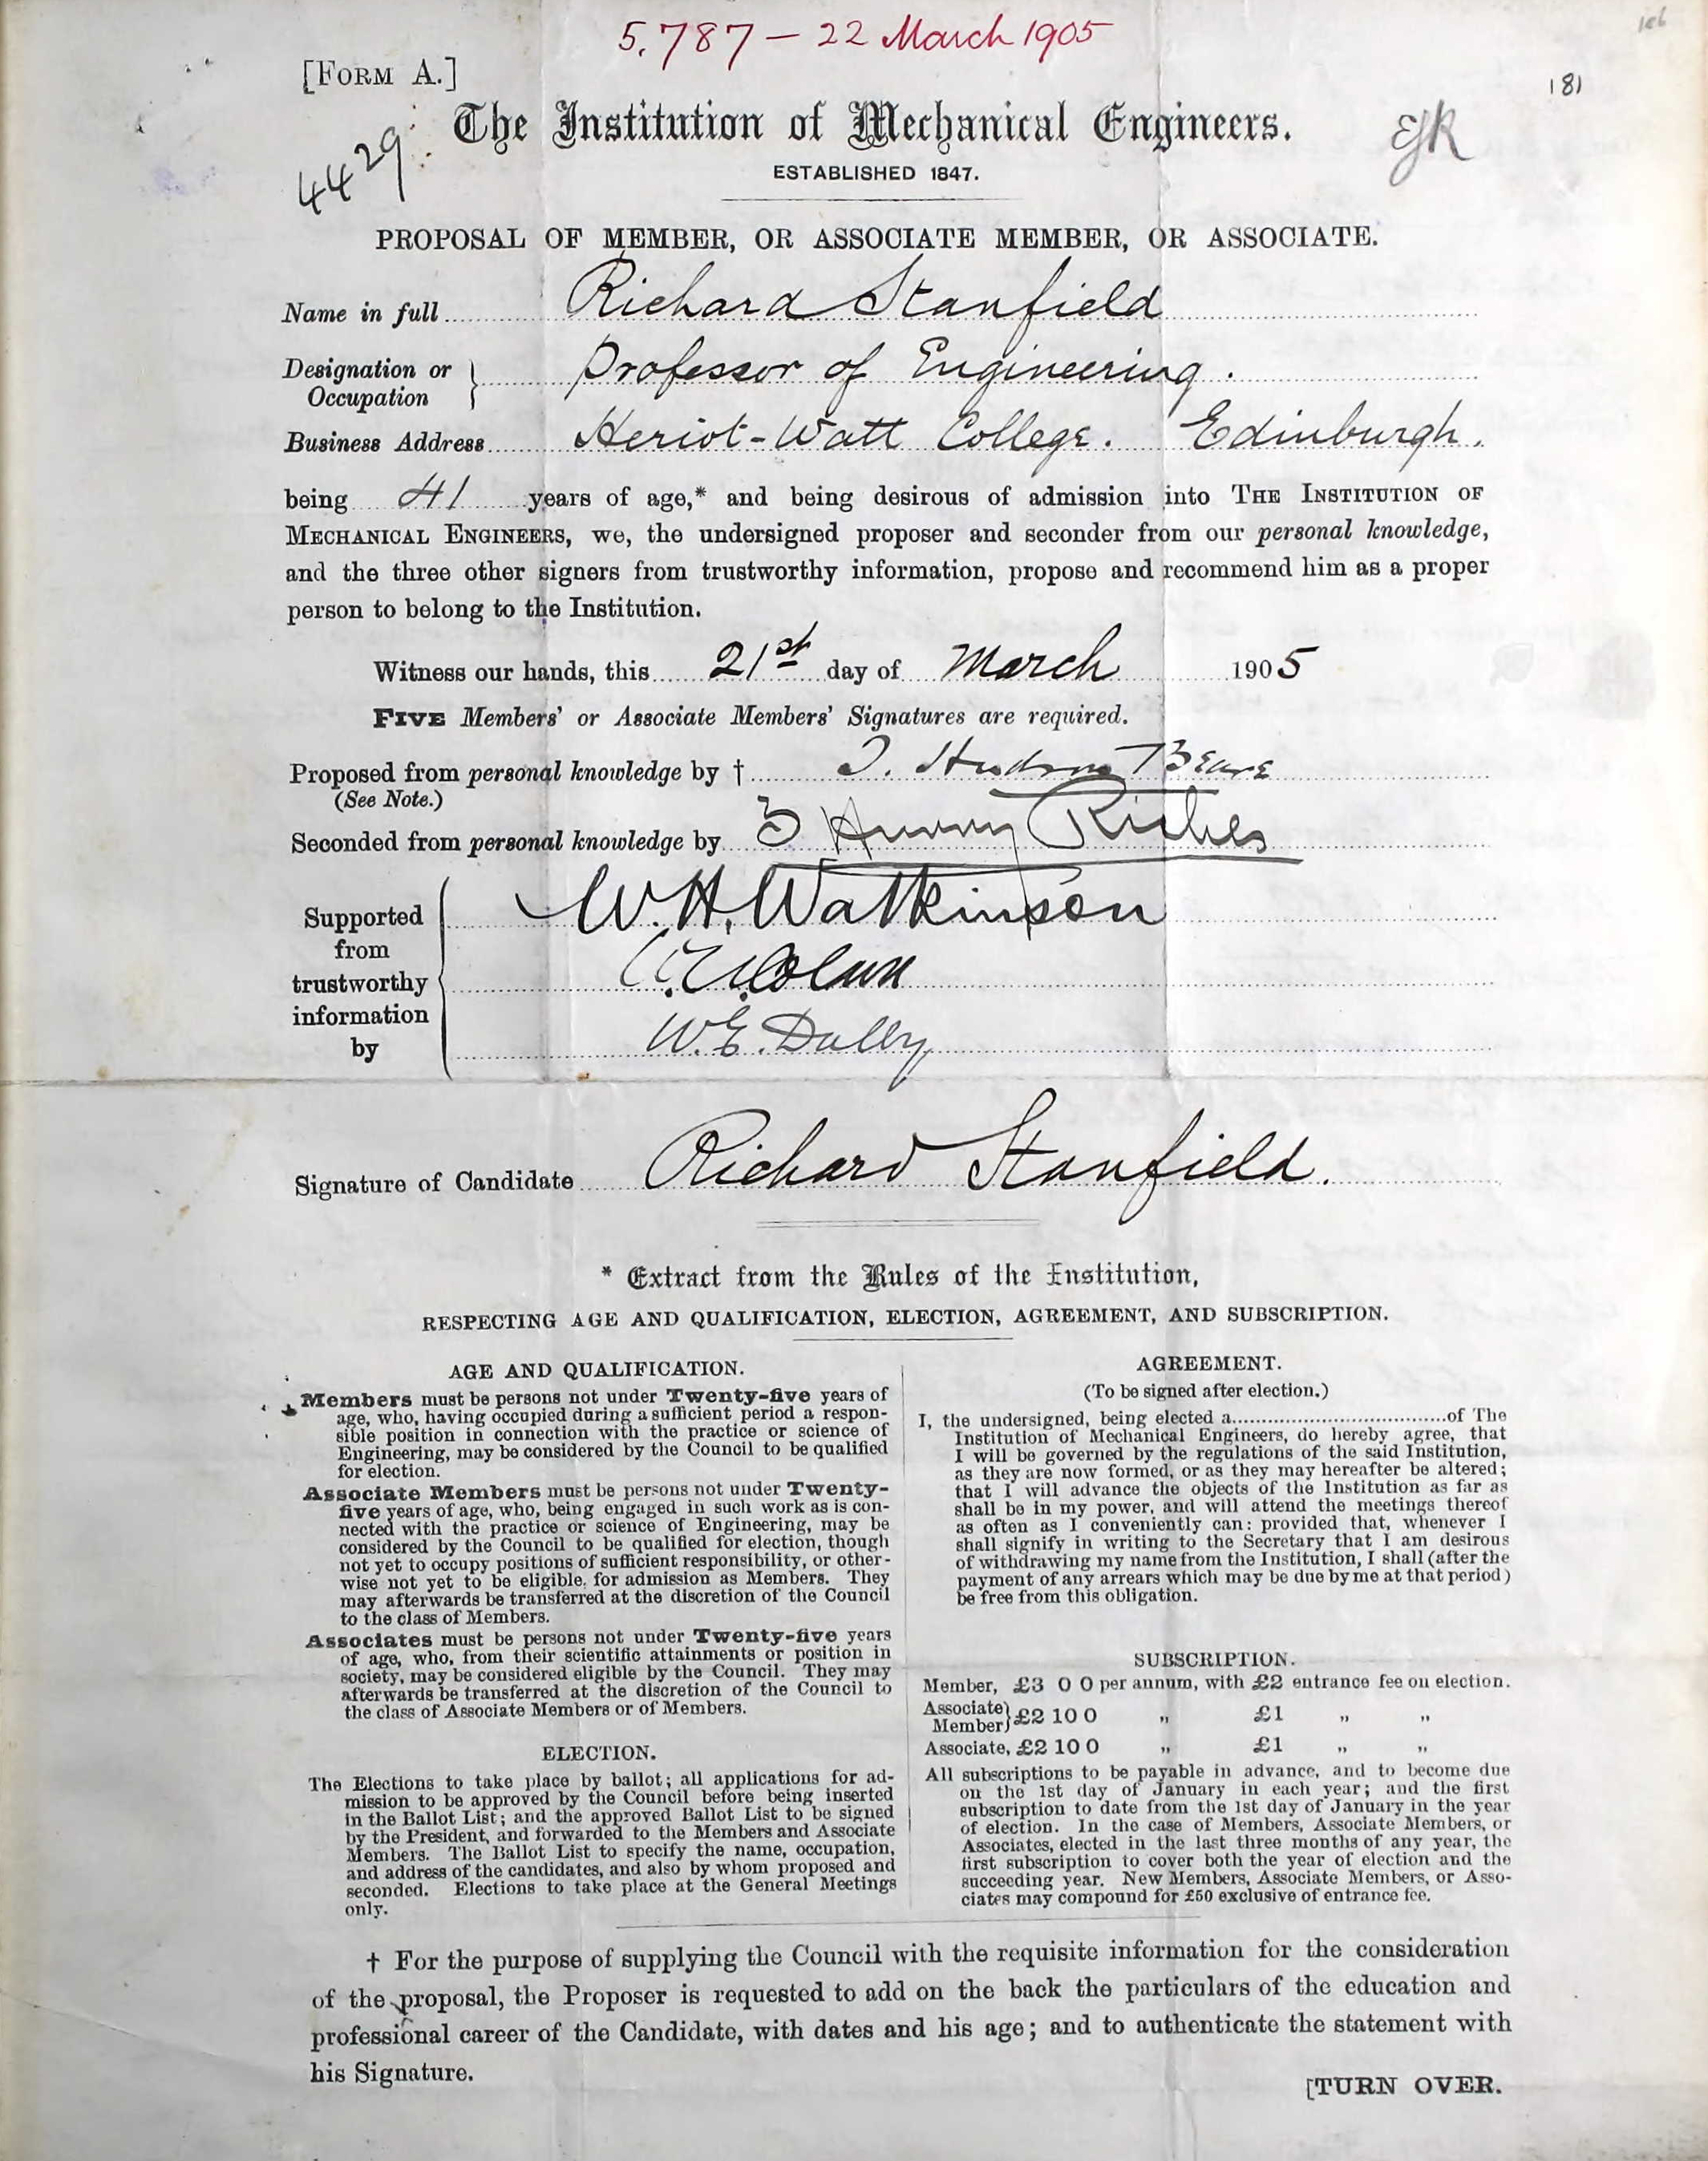 5,787 — 22 March 1905
[FORM A.]
181
4429
The Institution of Mechanical Engineers.
ESTABLISHED 1847.
PROPOSAL OF MEMBER, OR ASSOCIATE MEMBER, OR ASSOCIATE.
Name in full Richard Stanfield
Designation or Occupation } Professor of Engineering.
Business Address Heriot-Watt College. Edinburgh.
being 41 years of age,* and being desirous of admission into THE INSTITUTION OF
MECHANICAL ENGINEERS, we, the undersigned proposer and seconder from our personal knowledge,
and the three other signers from trustworthy information, propose and recommend him as a proper
person to belong to the Institution.
Witness our hands, this 21st day of March 1905
FIVE Members' or Associate Members' Signatures are required.
Proposed from personal knowledge by † T. Hudson Beare
(See Note.)
Seconded from personal knowledge by Hurry Riches
Supported from trustworthy information by
W. H. Watkinson
W.E. Dalby
Signature of Candidate Richard Stanfield.
* Extract from the Rules of the Institution,
RESPECTING AGE AND QUALIFICATION, ELECTION, AGREEMENT, AND SUBSCRIPTION.
AGE AND QUALIFICATION.
Members must be persons not under Twenty-five years of
age, who, having occupied during a sufficient period a respon-
sible position in connection with the practice or science of
Engineering, may be considered by the Council to be qualified
for election.
Associate Members must be persons not under Twenty-
five years of age, who, being engaged in such work as is con-
nected with the practice or science of Engineering, may be
considered by the Council to be qualified for election, though
not yet to occupy positions of sufficient responsibility, or other-
wise not yet to be eligible, for admission as Members. They
may afterwards be transferred at the discretion of the Council
to the class of Members.
Associates must be persons not under Twenty-five years
of age, who, from their scientific attainments or position in
society, may be considered eligible by the Council. They may
afterwards be transferred at the discretion of the Council to
the class of Associate Members or of Members.
ELECTION.
The Elections to take place by ballot; all applications for ad-
mission to be approved by the Council before being inserted
in the Ballot List; and the approved Ballot List to be signed
by the President, and forwarded to the Members and Associate
Members. The Ballot List to specify the name, occupation,
and address of the candidates, and also by whom proposed and
seconded. Elections to take place at the General Meetings
only.
AGREEMENT.
(To be signed after election.)
I, the undersigned, being elected a....................................of The
Institution of Mechanical Engineers, do hereby agree, that
I will be governed by the regulations of the said Institution,
as they are now formed, or as they may hereafter be altered;
that I will advance the objects of the Institution as far as
shall be in my power, and will attend the meetings thereof
as often as I conveniently can: provided that, whenever I
shall signify in writing to the Secretary that I am desirous
of withdrawing my name from the Institution, I shall (after the
payment of any arrears which may be due by me at that period)
be free from this obligation.
SUBSCRIPTION.
Member, £3 0 0 per annum, with £2 entrance fee on election.
Associate Member } £2 10 0 „ £1 „ „
Associate, £2 10 0 „ £1 „ „
All subscriptions to be payable in advance, and to become due
on the 1st day of January in each year; and the first
subscription to date from the 1st day of January in the year
of election. In the case of Members, Associate Members, or
Associates, elected in the last three months of any year, the
first subscription to cover both the year of election and the
succeeding year. New Members, Associate Members, or Asso-
ciates may compound for £50 exclusive of entrance fee.
† For the purpose of supplying the Council with the requisite information for the consideration
of the proposal, the Proposer is requested to add on the back the particulars of the education and
professional career of the Candidate, with dates and his age; and to authenticate the statement with
his Signature.
[TURN OVER.